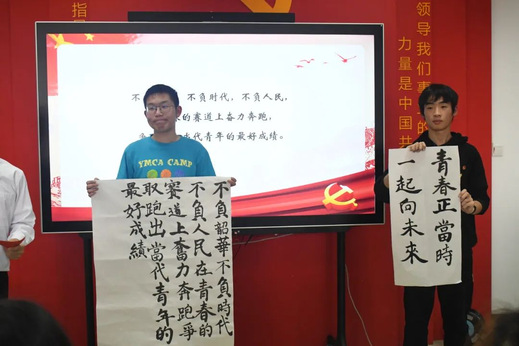 指
领导我们事业的
力量是中国共
不负时代，不负人民，
的赛道上奋力奔跑，
代青年的最好成绩。
YMCA CAMP
不負韶華不負時代
不負人民在青春的
賽道上奮力奔跑爭
取跑出當代青年的
最好成績
青春正當時
一起向未來